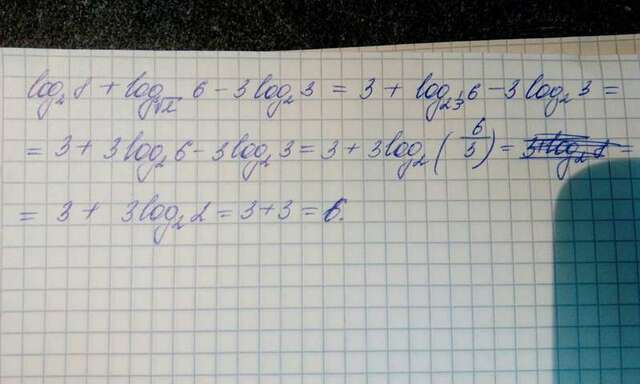 log₂ 8 + log_∛2 6 - 3 log₂ 3 = 3 + log_2^(1/3) 6 - 3 log₂ 3 =
= 3 + 3 log₂ 6 - 3 log₂ 3 = 3 + 3 log₂ (6/3) =
= 3 + 3 log₂ 2 = 3 + 3 = 6.